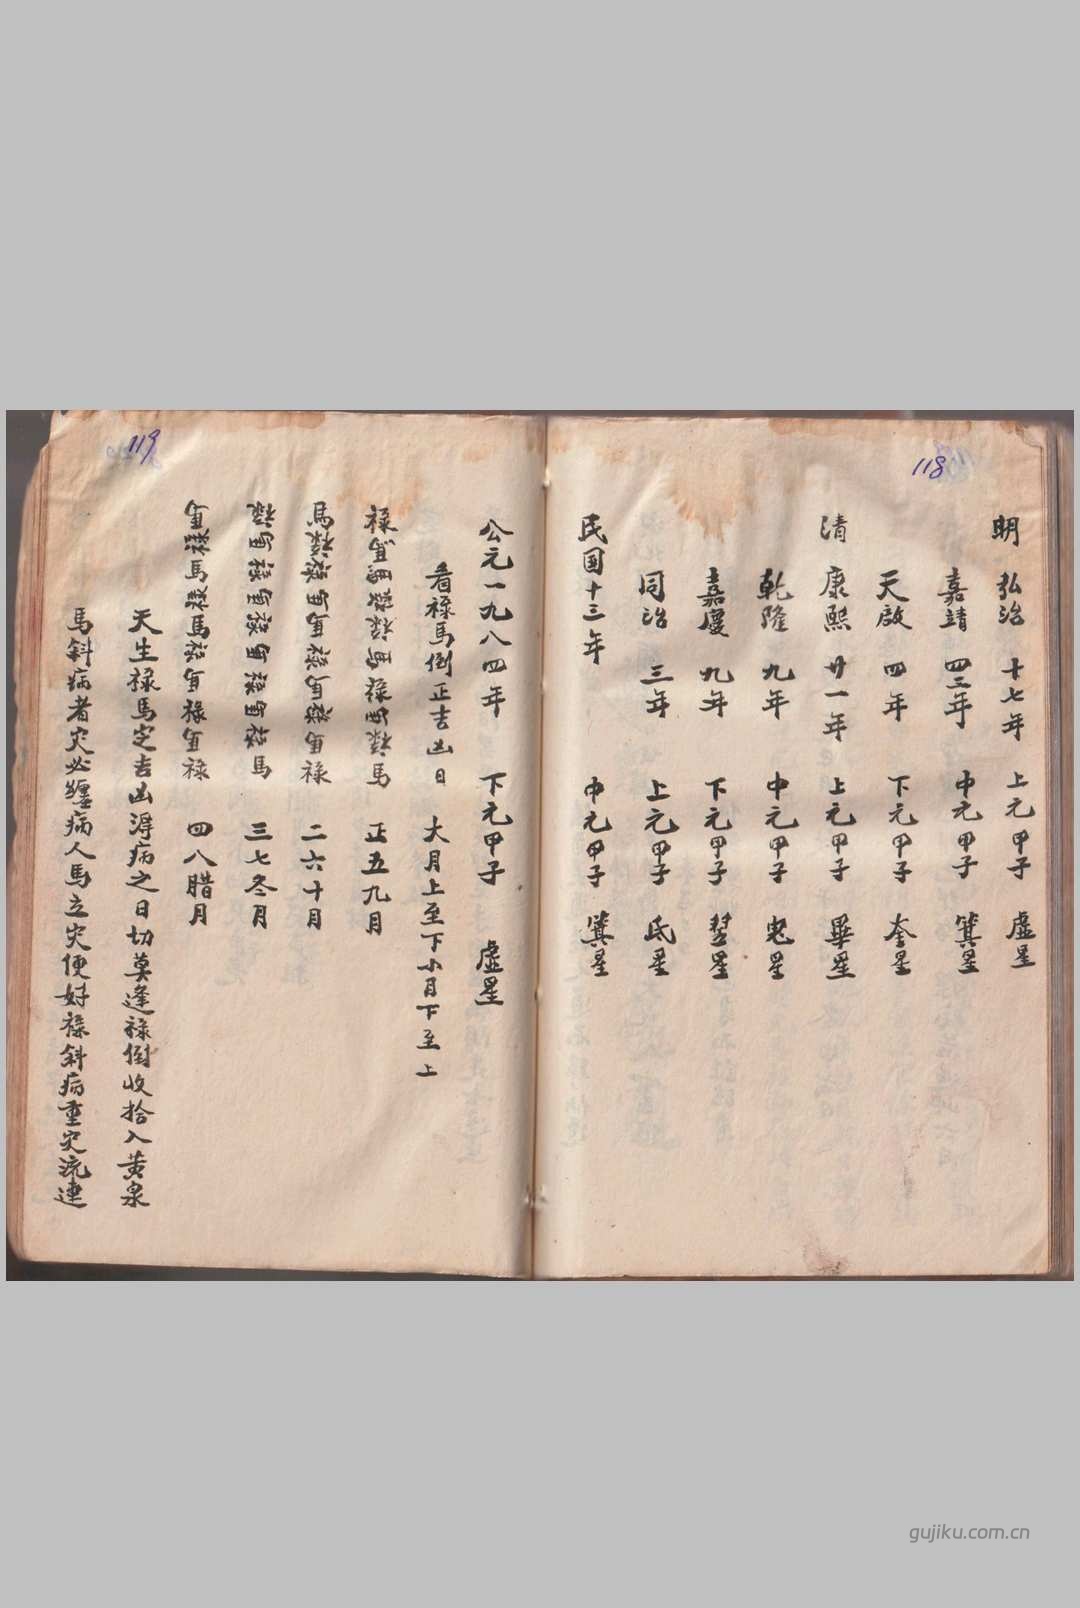 118
明 弘治 十七年 上元甲子 虚星
嘉靖 四三年 中元甲子 箕星
天啟 四年 下元甲子 奎星
清 康熙 廿一年 上元甲子 畢星
乾隆 九年 中元甲子 鬼星
嘉慶 九年 下元甲子 翌星
同治 三年 上元甲子 氐星
民国十三年 中元甲子 箕星
119
公元一九八四年 下元甲子 虚星
看禄馬倒正吉凶日 大月上至下小月下至上
禄馬馬禄禄馬禄馬禄馬 正五九月
馬禄禄馬馬禄馬禄馬禄 二六十月
禄馬禄馬禄馬禄馬禄馬 三七冬月
馬禄馬禄馬禄馬禄馬禄 四八腊月
天生禄馬定吉凶淂病之日切莫逢禄倒收拾入黄泉
馬斜病者灾必纏病人馬立灾便好禄斜病重灾流連
gujiku.com.cn